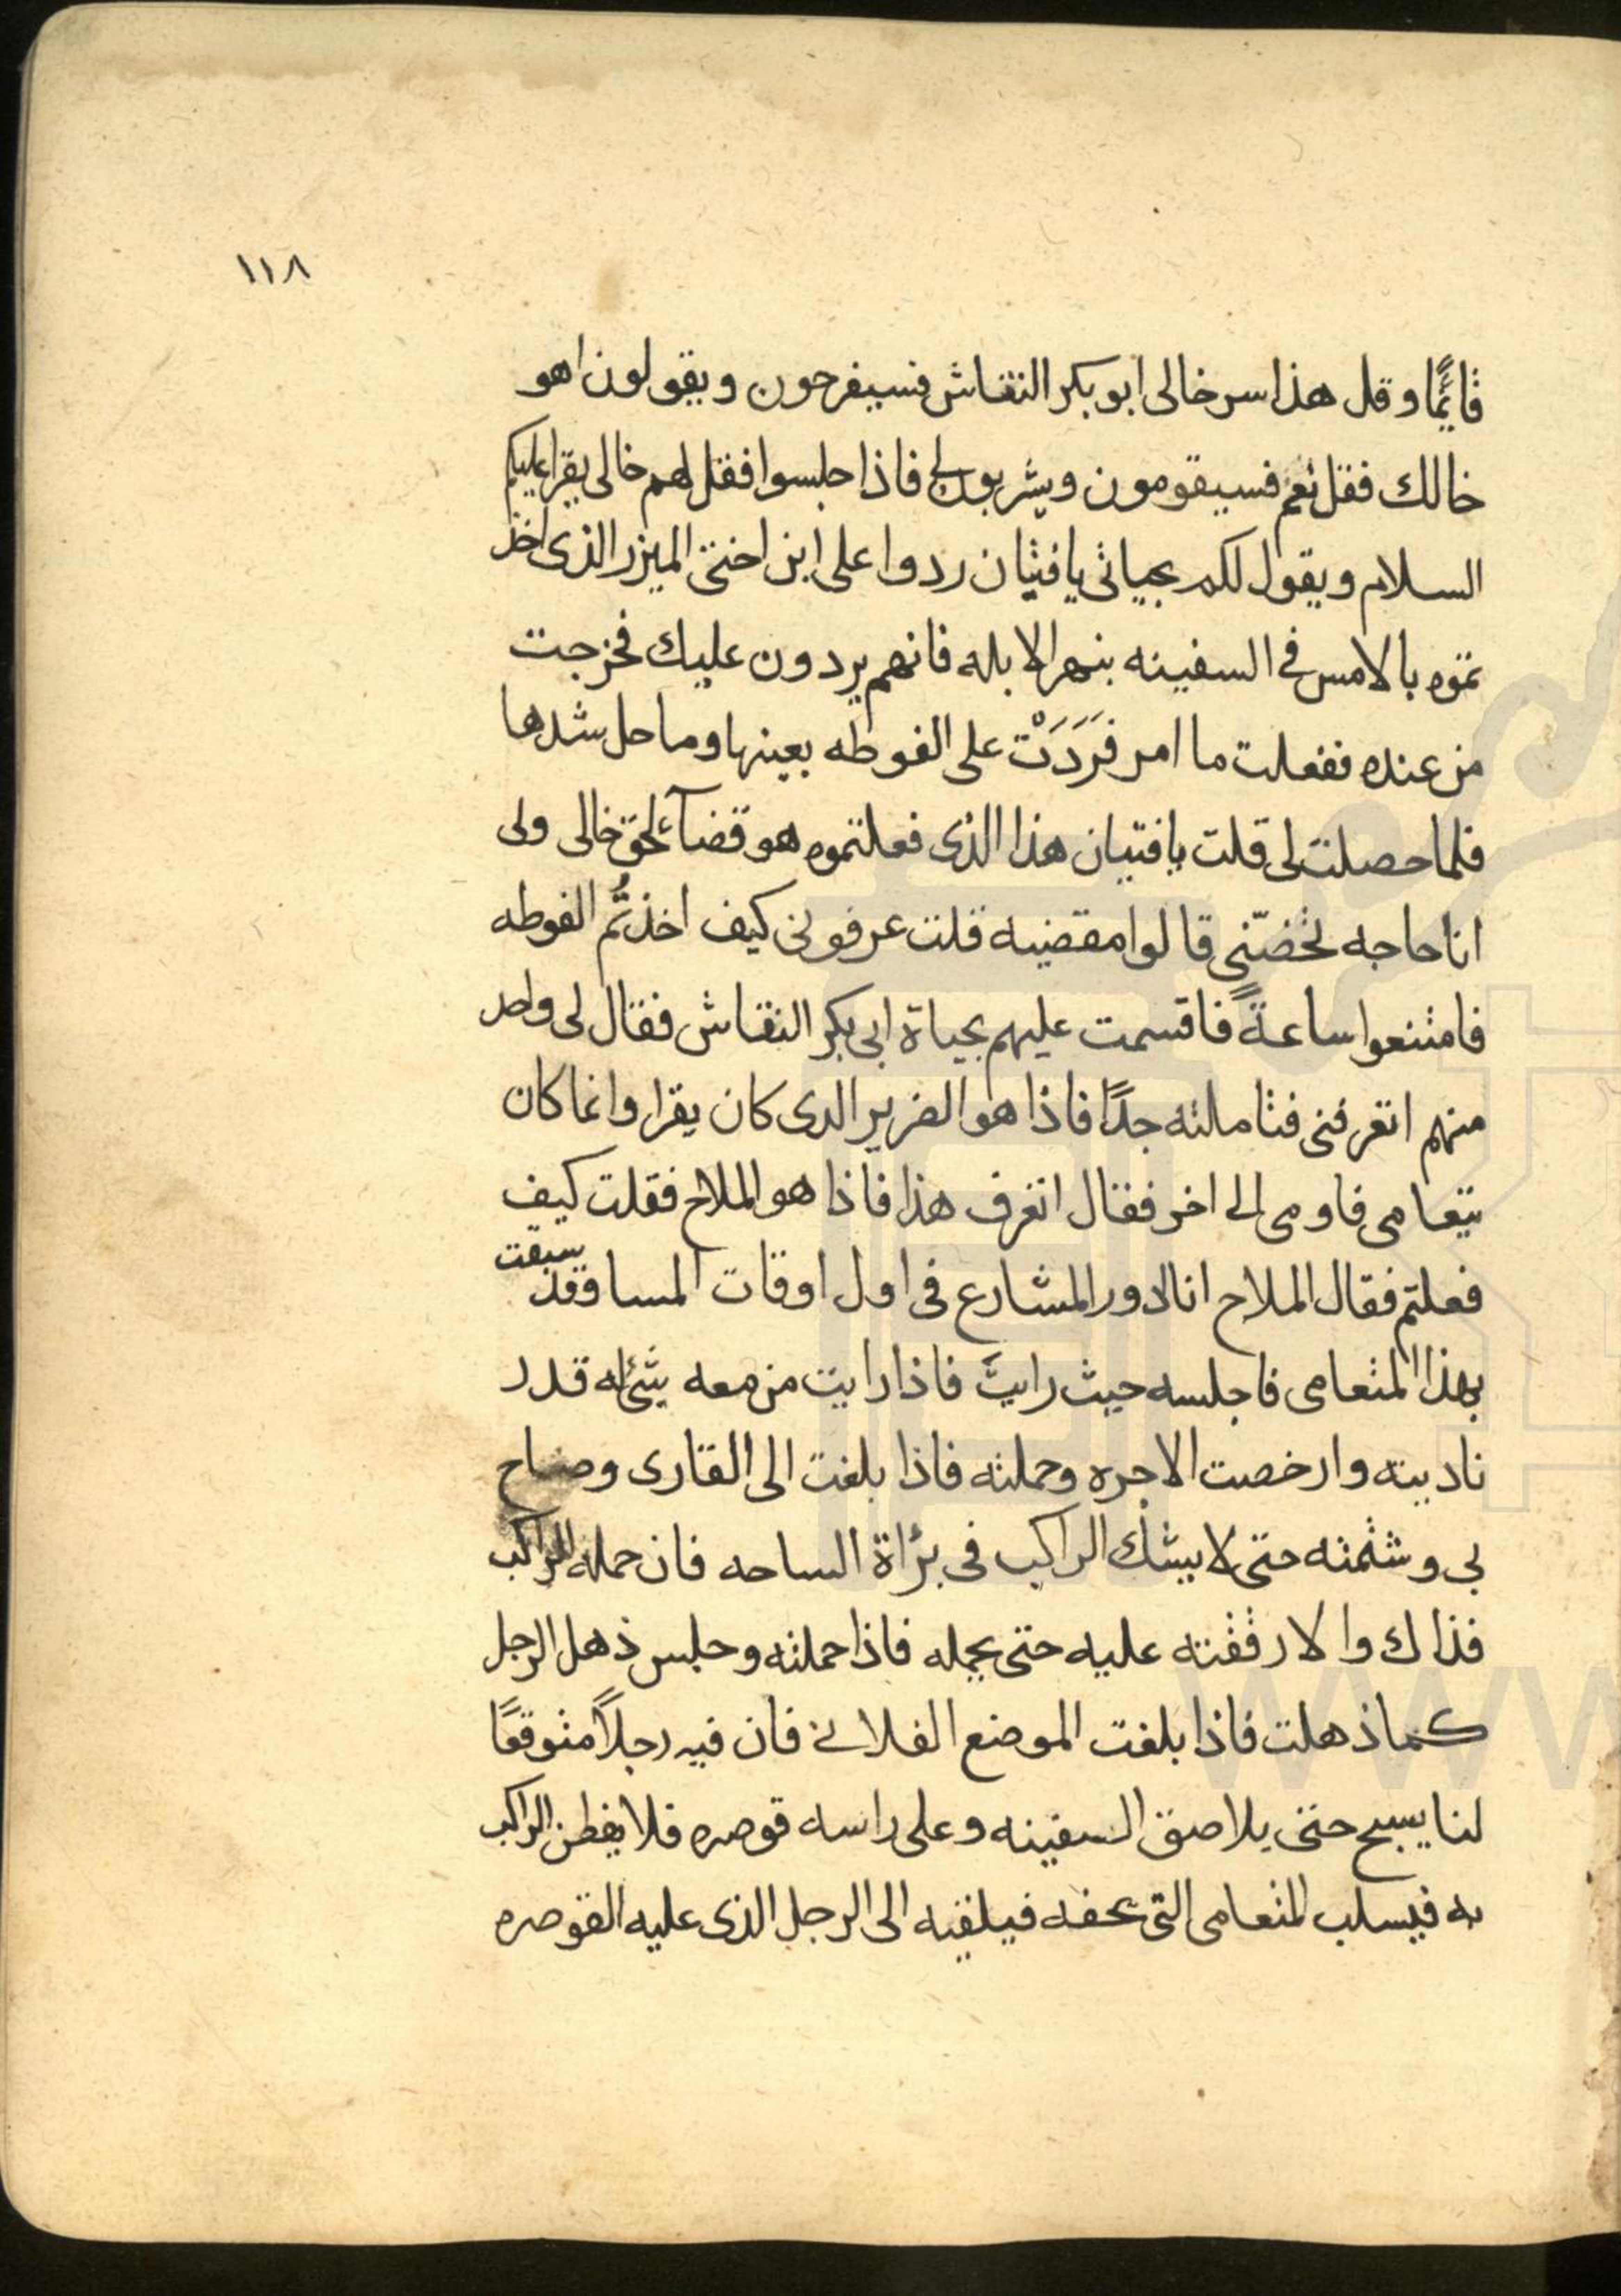 ١١٨
قايمًا وقل هذا سر خالى ابو بكر النقاش فسيفرحون ويقولون اهو
خالك فقل نعم فسيقومون ويشربون لى فاذا جلسوا فقل لهم خالى يقرا عليكم
السلام ويقول لكم بحياتى يا فتيان ردوا على ابن اختى الميزر الذى اخذ
تموه بالامس فى السفينه بنهر الابله فانهم يردون عليك فخرجت
من عنده ففعلت ما امر فَرَدَتْ على الفوطه بعينها وما حل شدها
فلما حصلت لى قلت يا فتيان هذا الذى فعلتموه هو قضآء لحق خالى ولى
انا حاجه تخصّنى قالوا مقضيه قلت عرفونى كيف اخذتُم الفوطه
فامتنعوا ساعةً فاقسمت عليهم بحياة ابى بكر النقاش فقال لى واحد
منهم اتعرفنى فتاملته جدًا فاذا هو الضرير الدى كان يقرا وانما كان
يتعامى فاومى الى اخر فقال اتعرف هذا فاذا هو الملاح فقلت كيف
فعلتم فقال الملاح انا ادور المشارع فى اول اوقات المسا وقد سبقت
بهذا المتعامى فاجلسه حيث رايتَ فاذا رايت من معه شئ له قدر
ناديته وارخصت الاجره وحملته فاذا بلغت الى القارى وصاح
بى وشتمته حتى لا يشك الراكب فى برأة الساحه فان حمله الراكب
فذاك والا رققته عليه حتى يحمله فاذا حملته وجلس ذهل الرجل
كما ذهلت فاذا بلغت الموضع الفلانى فان فيه رجلاً متوقعًا
لنا يسبح حتى يلاصق السفينه وعلى راسه قوصره فلا يفطن الراكب
به فيسلب المتعامى التى بخفه فيلقيه الى الرجل الذى عليه القوصره